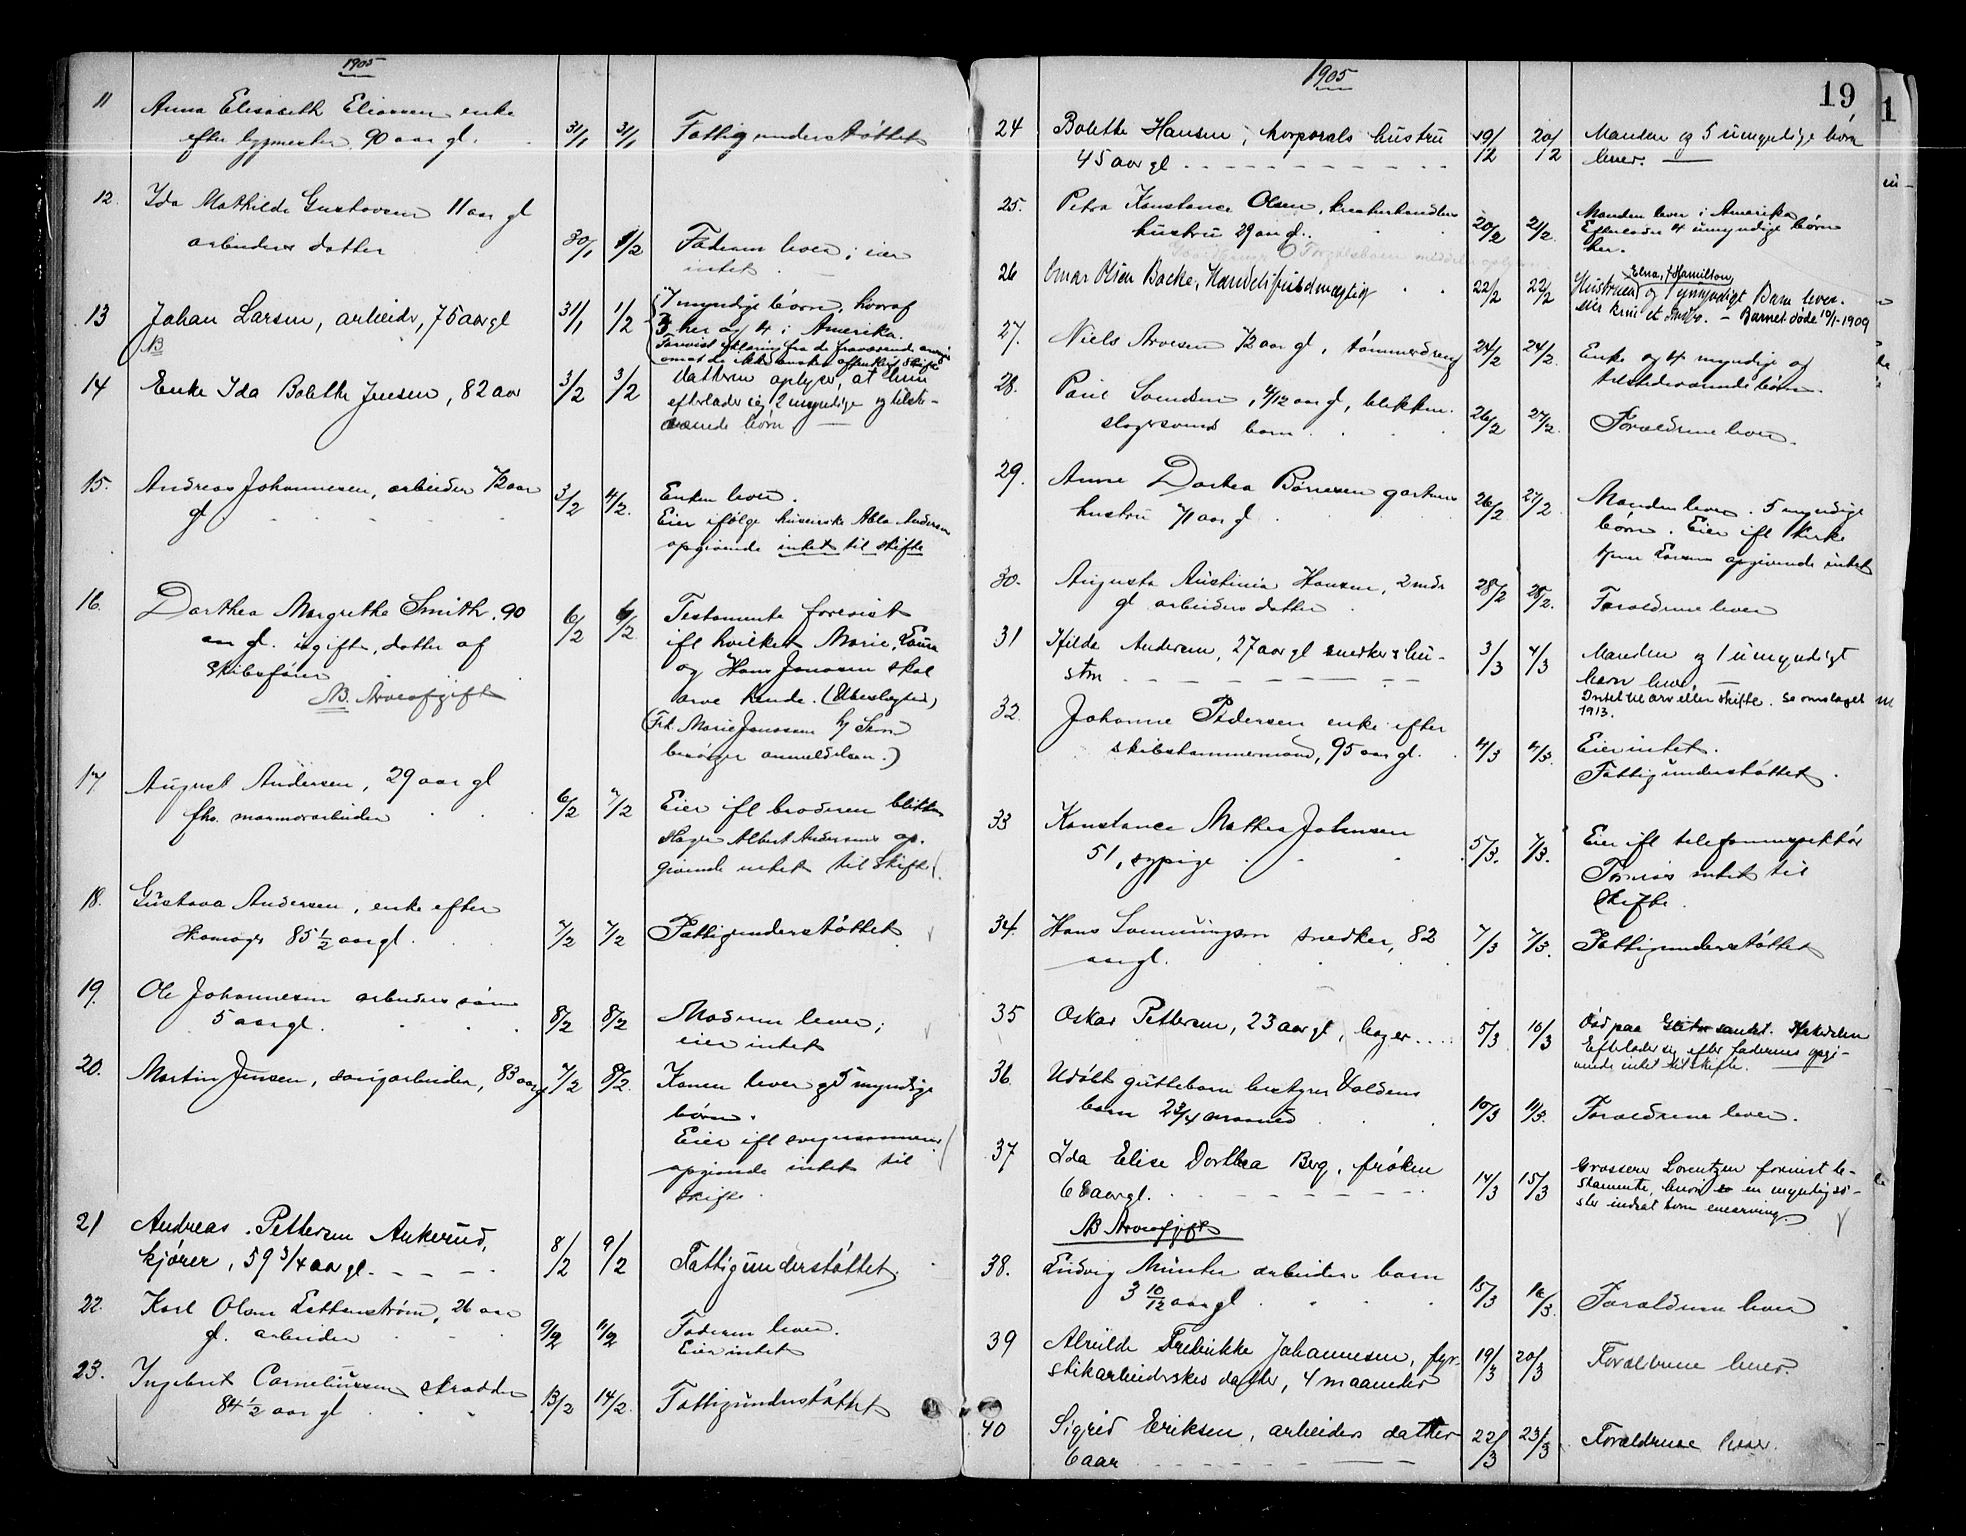 1905
11 Anna Elisabeth Eliassen enke
efter bygmester, 90 aar gl. 31/1 31/1 Fattigunderstøttet
12. Ida Mathilde Gustavsen 11 aar gl
arbeiders datter 30/1 1/2 Faderen lever; eier
intet
13 Johan Larsen, arbeider, 75 aar gl 31/1 1/2 7 myndige børn, hvoraf
NB 3 her og 4 i Amerika.
14 Enke Ida Bolette Jensen, 82 aar 3/2 3/2 datteren oplyser, at hun
efterlader sig 2 myndige og tilste-
værende børn
15. Andreas Johannesen, arbeider 72 aar
gl 3/2 4/2. Enken lever.
Eier ifølge husenske Abla Andersen
opgivende intet til skifte
16. Dorthea Margrethe Smith, 90
aar gl. ugift, datter af
skibsfører 6/2 6/2 Testamente forevist
ifl hvilket Marie, Laura
og Hans Jonassen skal
arve hende. (Ubeslægted)
NB. Arveafgift
(Frk. Marie Jonassen
besørger anmeldelsen.)
17 August Andersen, 29 aar gl
fhv. marmorarbeider 6/2 7/2 Eier ifl broderen blikken
slager Albert Andersens op-
givende intet til skifte
18. Gustava Andersen, enke efter
skomager 85 1/2 aar gl. 7/2 7/2 Fattigunderstøttet
19. Ole Johannesen arbeiders søn
5 aar gl. 8/2 8/2 Moderen lever;
eier intet
20. Martin Jensen, saugarbeider, 83 aar gl 7/2 8/2. Konen lever og 5 myndige
børn.
Eier ifl svigersønnens
opgivende intet til
skifte.
21 Andreas Pettersen Ankerud,
kjører, 59 3/4 aar gl. 8/2 9/2 Fattigunderstøttet.
22. Karl Olsen Lettenstrøm, 26 aar
gl. arbeider 9/2 11/2 Faderen lever.
Eier intet
23. Ingebret Corneliussen skrædder
84 1/2 aar gl 13/2 14/2. Fattigunderstøttet
1905
19
24 Bolette Hansen, korporals hustru
45 aar gl 19/12 20/12 Manden og 5 umyndige børn
lever.
25. Petra Konstance Olsen, kreaturhandlers
hustru 29 aar gl. 20/2 21/2. Manden lever i Amerika
Efterlader 4 umyndige børn
her.
26 Omar Olsen Backe, Handelsfuldmægtig 22/2 22/2 Hustruen og 1 umyndigt Barn lever.
Elna, Hamilton
Barnet døde 10/1-1909
27. Niels Arvesen 72 aar gl, tømmerdreng 24/2 24/2. Enke og 4 myndige og
tilstedeværende børn.
28. Paul Svendsen, 4/12 aar gl, blikken-
slagersvends barn 26/2 27/2. Forældrene lever.
29. Anne Dorthea Børresen gartners
hustru 71 aar gl 26/2 27/2 Manden lever. 5 myndige
børn. Eier ifl kirke
tjener Larsens opgivende intet
30. Augusta Austinia Hansen, 2 mdr
gl arbeiders datter 28/2 28/2. Forældrene lever
31 Hilda Andersen, 27 aar gl snedkers hu-
stru 3/3 4/3 Manden og 1 umyndigt
barn lever.
Intet til arv eller skifte. Se omslaget
1913.
32. Johanne Pedersen enke efter
skibstømmermand, 95 aar gl. 4/3 4/3. Eier intet.
Fattigunderstøttet.
33 Konstance Mathea Johnsen
51, sypige 5/3. 7/3. Eier ifl telefoninspektør
intet til
skifte.
34. Hans Svenningsen snedker, 82
aar gl. 7/3 7/3. Fattigunderstøttet
35 Oskar Pettersen, 23 aar gl, bager 5/3 10/3 Død paa
Efterlader sig efter faderens opgi-
vende intet til skifte.
36. Udøbt guttebarn bestyrer Valdens
barn 2 3/4 maaned 10/3 11/3. Forældrene lever.
37 Ida Elise Dorthea Berg, frøken
68 aar gl. 14/3 15/3 Grosserer Lorentzen forevist te-
stamente, hvori en myndig sø-
ster indsat som enearving
NB Arveafgift
38. Ludvig Münter arbeiders barn
3 10/12 aar gl 15/3 16/3. Forældrene lever
39 Alvilde Fredrikke Johannesen, fyr-
stikarbeiderskes datter, 4 maaneder 19/3 20/3 Forældrene lever.
40 Sigrid Eriksen, arbeiders datter
6 aar 22/3 23/3 Forældrene lever.